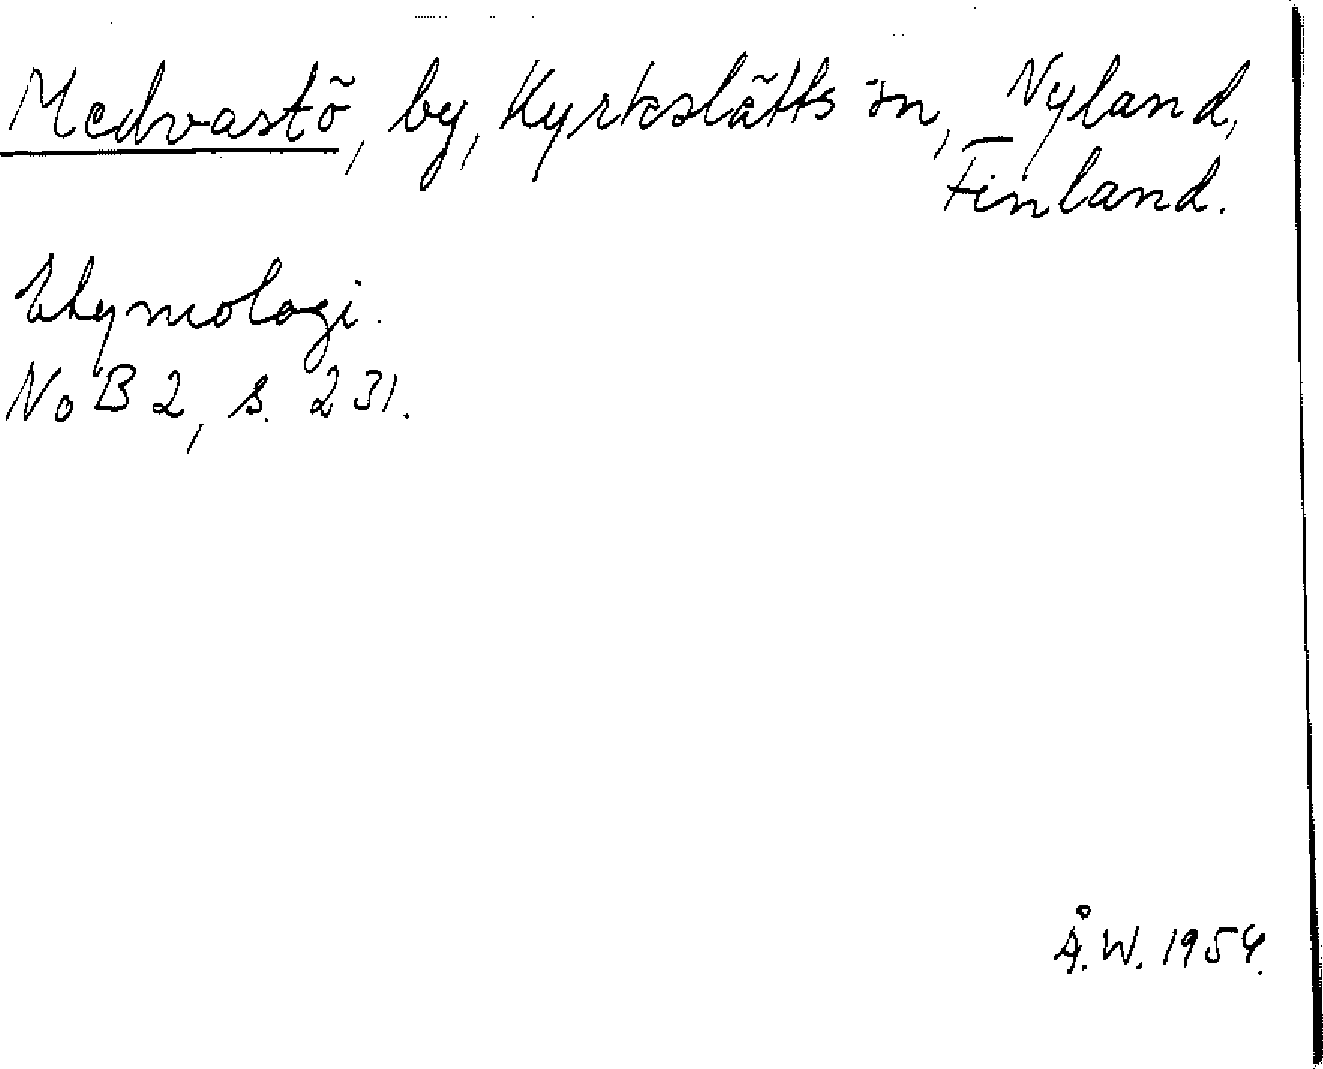 Medvastö, by, Kyrkslätts sn, Nyland,
Finland.
Etymologi.
NoB 2, s. 231.
Å.W. 1954.